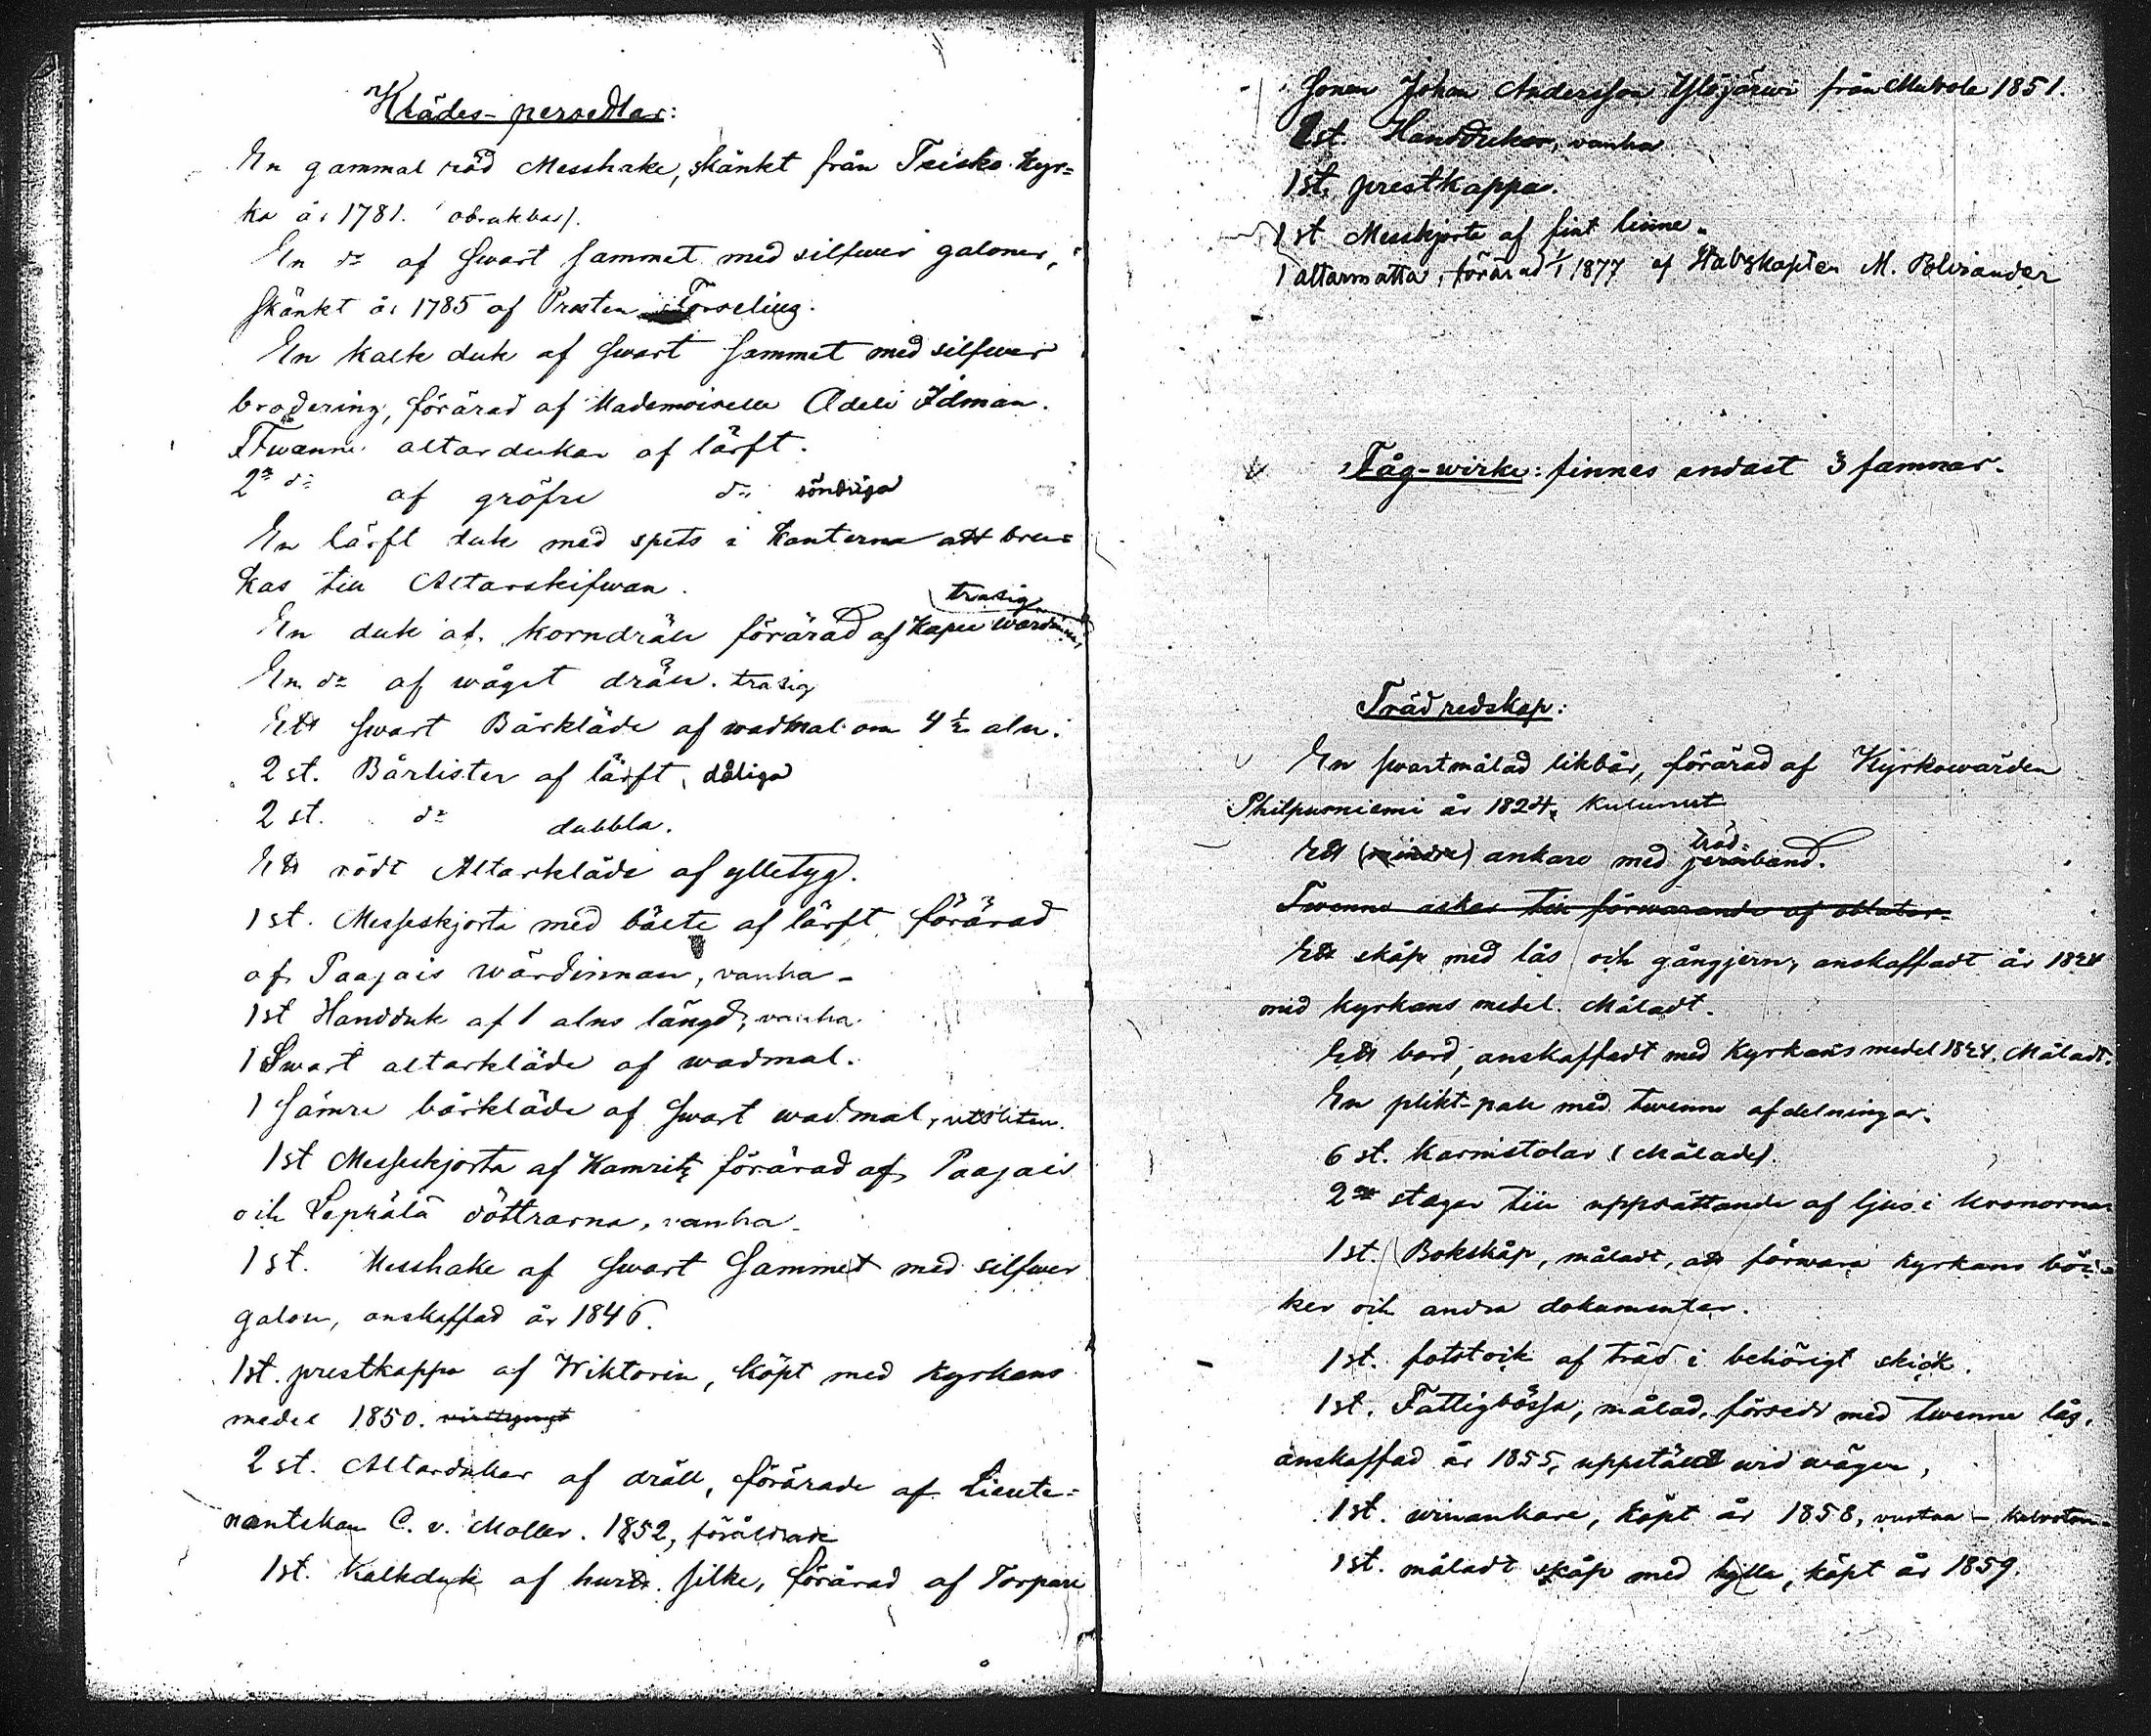 Klädes-persedlar:
En gammal röd Messhake, skänkt från Teisko Kyr=
ka år 1781. (obrukbar).
En do af swart sammet med silfwer galoner,
skänkt år 1785 af Prosten Forseling.
En kalk duk af swart sammet med silfwer
brodering, förärad af Mademoiselle Adele Idman.
Twänne altardukar af lärft.
2ne do af gröfre do söndriga
En lärft duk med spets i Kanterna att bru=
kas till Altarskifwan.
trasig
En duk af korndräll förärad af Kapell wärdinnan,
En do af wåget dräll. trasig
Ett swart Bårkläde af wadmal om 4 ½ aln.
2 st. Bårlister af lärft, dåliga
2 st. do dubbla.
Ett rödt Altarkläde af ylletyg.
1 st. Messeskjorta med bälte af lärft förärad
af Paajais wärdinnan, vanha -
1 st Handduk af 1 alns längd, vanha.
1 Swart altarkläde af wadmal.
1 sämre bårkläde af swart wadmal, utsliten.
1 st Messeskjorta af Kamritz förärad af Paajais
och Sepkälä döttrarna, vanha.
1 st. Messhake af swart sammet med silfwer
galon, anskaffad år 1846.
1 st. prestkappa af Wiktorin, köpt med kyrkans
medel 1850.
2 st. Altardukar af dräll, förärade af Lieute=
nantskan C. v. Moller. 1852, föråldrade
1 st. Kalkduk af hwitt silke, förärad af Torpare
sonen Johan Andersson Ylöjärwi från Mutola 1851.
2 st. Handdukar, vanha
1 st. prestkappa.
1 st Messkjorta af fint linne.
1 altarmatta, förärad 1/1 1877 af Stabskapten M. Polviander
Tåg-wirke: finnes endast 3 famnar.
Trädredskap:
En swartmålad likbår, förärad af Kyrkowärden
Philpurniemi år 1824, kulunut
träd-
Ett (mindre) ankare med jernband.
Twenne askar till förwarande af oblater.
Ett skåp med lås och gångjern, anskaffadt år 1824
med kyrkans medel. Måladt.
Ett bord, anskaffadt med Kyrkans medel 1824. Måladt.
En plikt-pall med twenne afdelningar.
6 st. Karmstolar (målade).
2ne stegar till uppsättande af ljus i kronorna
1 st. Bokskåp, måladt, att förwara kyrkans böc=
ker och andra dokumenter.
1 st. fotstock af träd i behörigt skick.
1 st. Fattigbössa, målad, försedd med twenne lås,
anskaffad år 1855, uppställd wid wägen,
1 st. winankare, köpt år 1858,
1 st. måladt skåp med hylla, köpt år 1859.